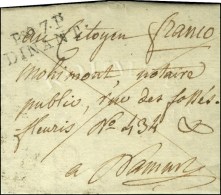 P.97.P.
DINANT
au Citoyen franco
mohimont, notaire
public, rue des fossés
fleuris N.° 434
a Namur